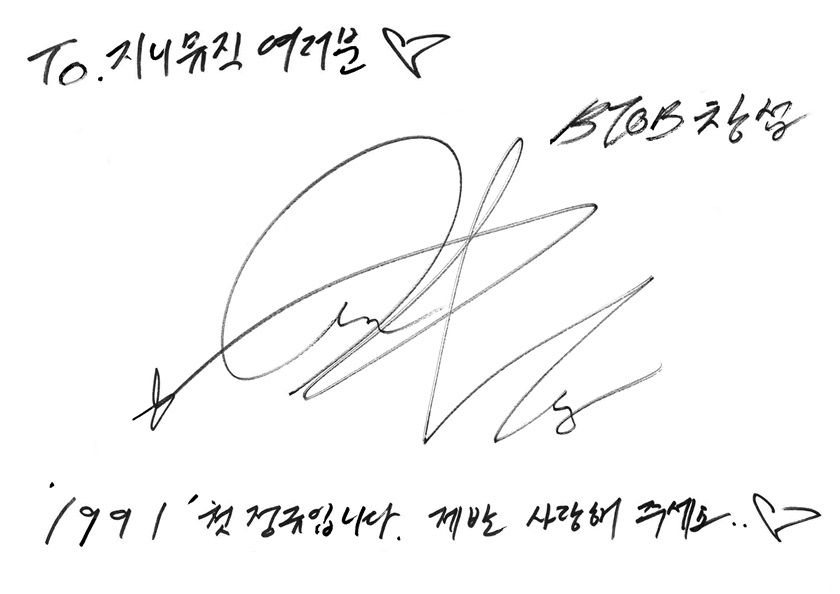 To. 지니뮤직 여러분 ♡
BTOB 창섭
'1991' 첫 정규입니다. 제발 사랑해 주세요.. ♡